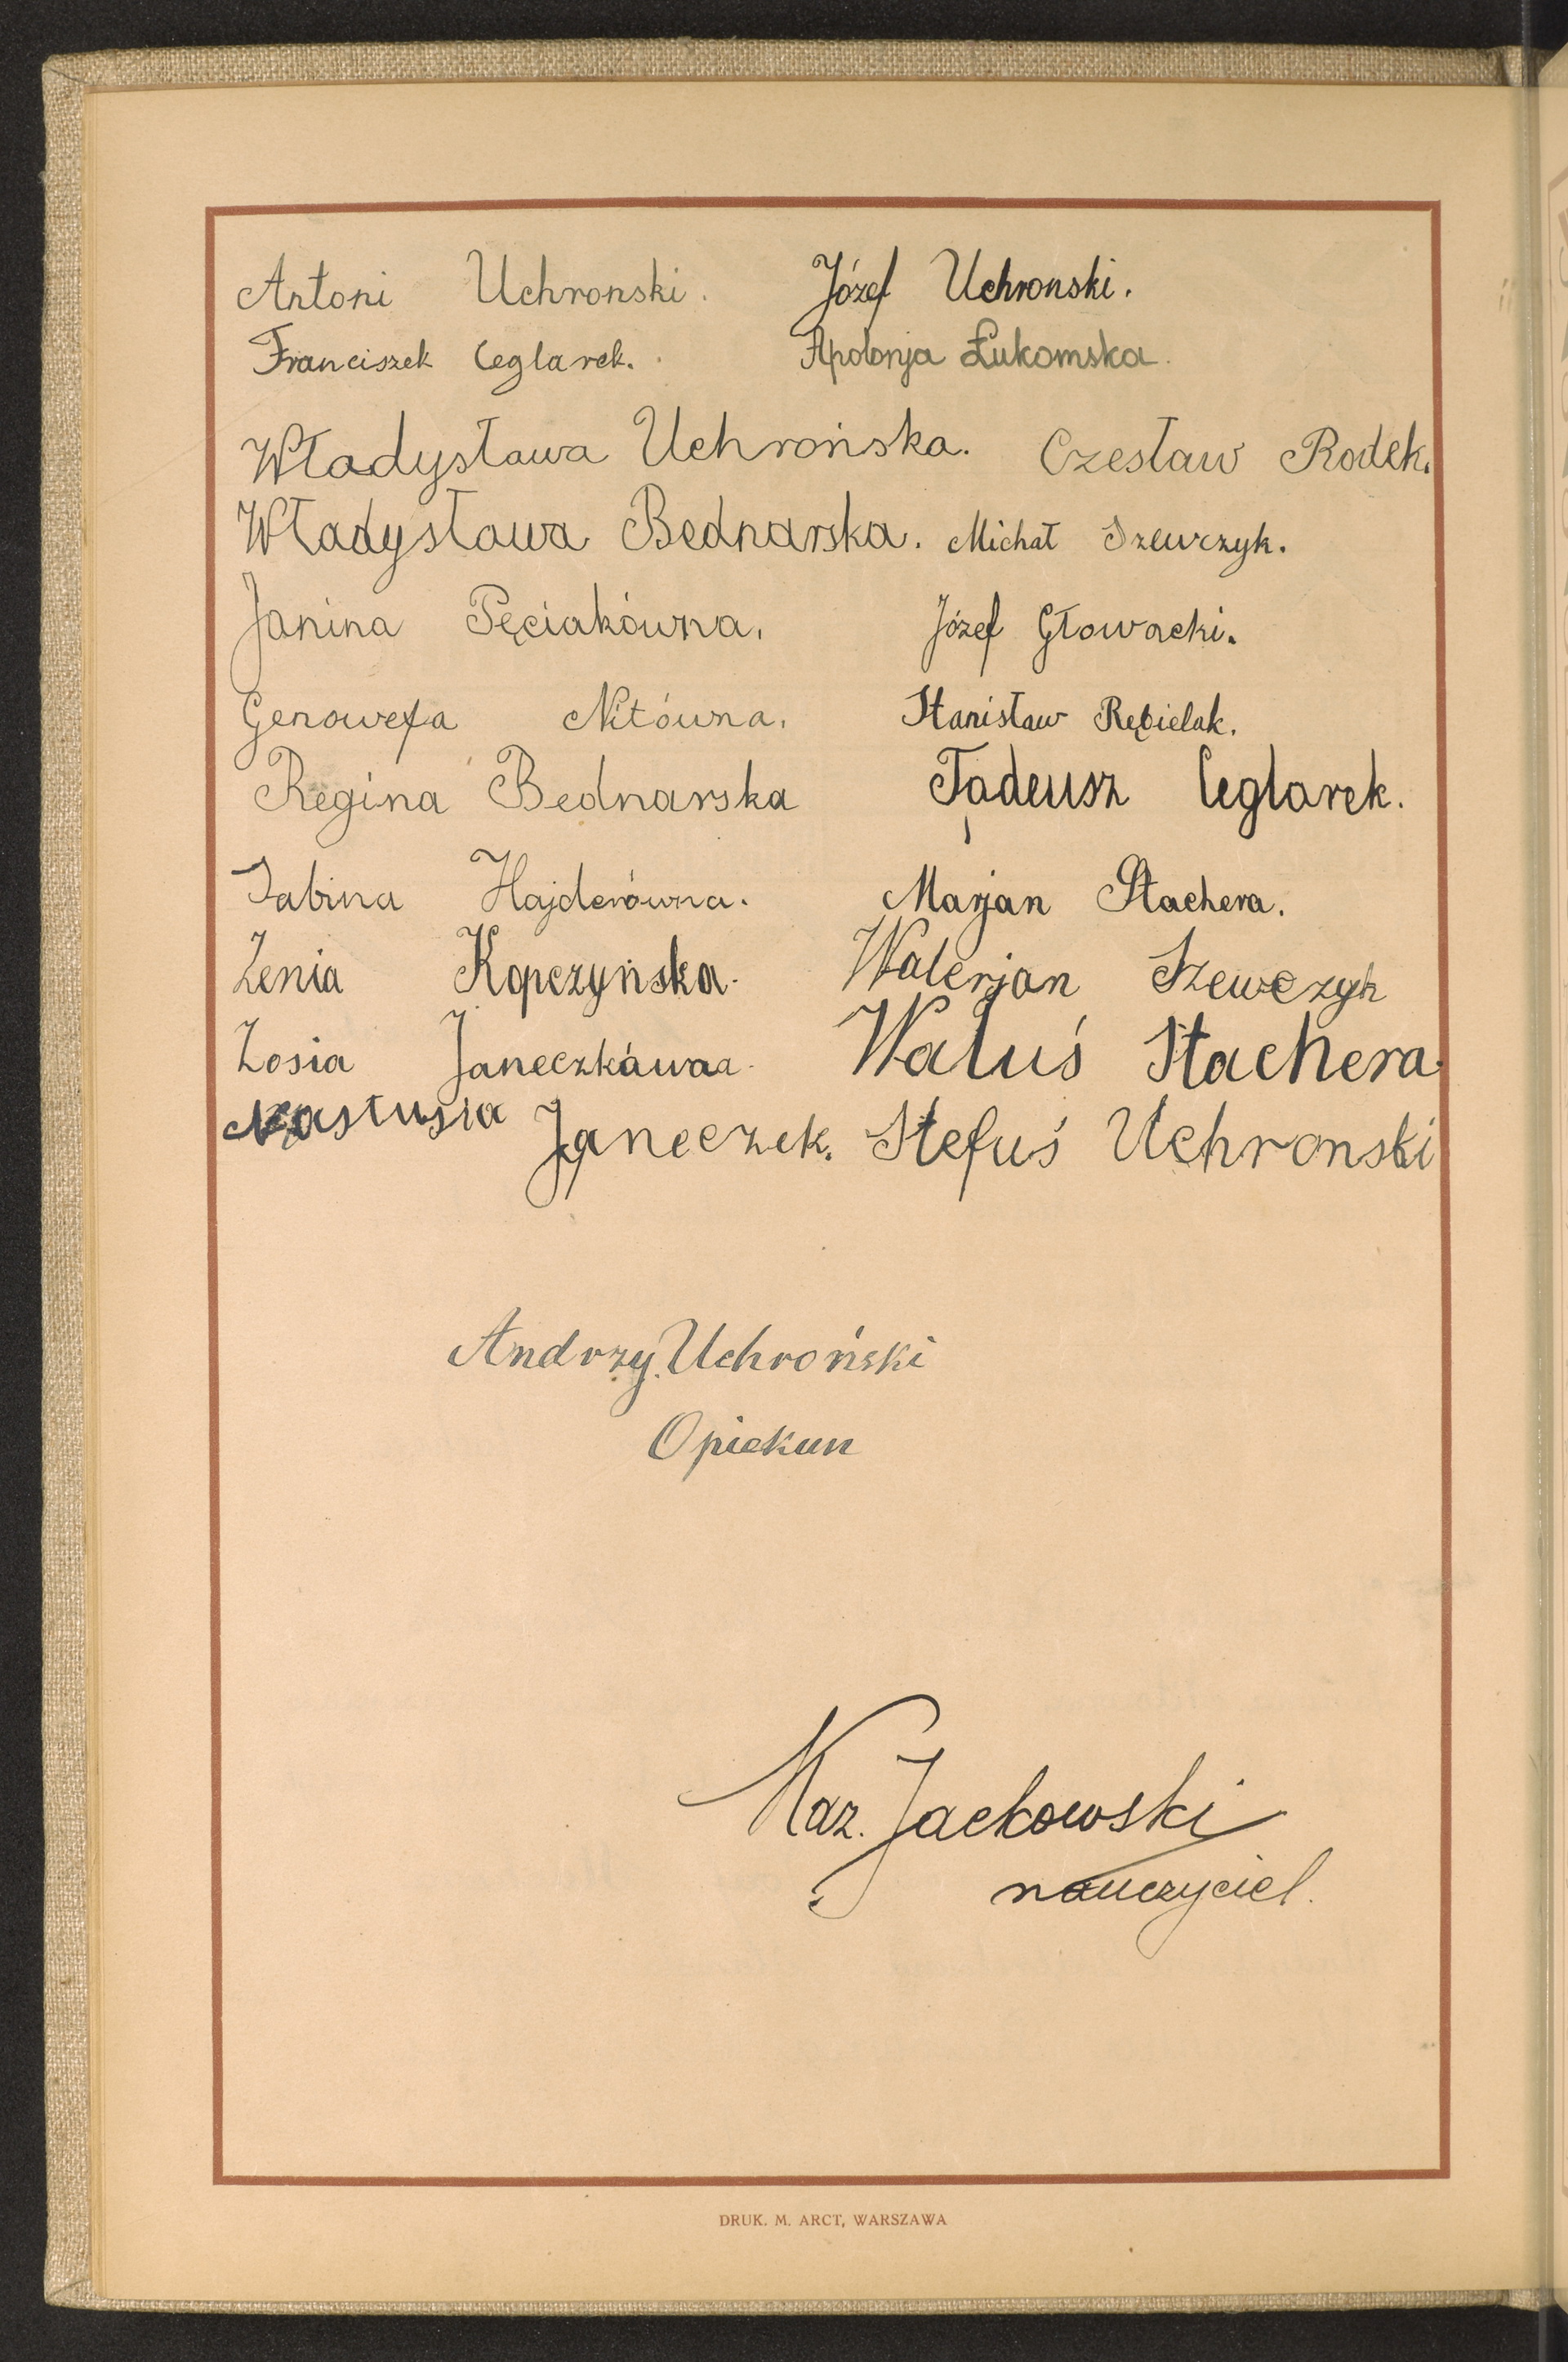 Antoni Uchronski. Józef Uchronski.
Franciszek Ceglarek. Apolonja Łukomska.
Władysława Uchrońska. Czesław Rodek.
Władysława Bednarska. Michał Szewczyk.
Janina Pęciakówna. Józef Głowacki.
Genowefa Nitówna. Stanisław Rębielak.
Regina Bednarska Tadeusz Ceglarek.
Sabina Hajderówna. Marjan Stachera.
Zenia Kopczyńska. Walerjan Szewczyk
Zosia Janeczkówna. Waluś Stachera.
Nastusia Janeczek. Stefuś Uchronski
Andrzy Uchroński
Opiekun
Kaz. Jackowski
nauczyciel.
DRUK. M. ARCT, WARSZAWA